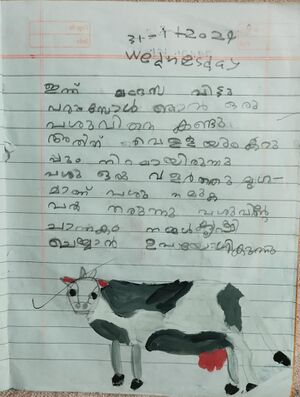 31-1-2024
Wednesday
ഇന്ന് മദ്റസ വിട്ടു
വരുമ്പോൾ ഞാൻ ഒരു
പശുവിനെ കണ്ടു
അതിന് വെള്ളയും കറു
പ്പും നിറമായിരുന്നു
പശു ഒരു വളർത്തു മൃഗ-
മാണ് പശു നമുക്ക്
പാൽ തരുന്നു പശുവിന്റെ
ചാണകം നമ്മൾ കൃഷി
ചെയ്യാൻ ഉപയോഗിക്കുന്നു